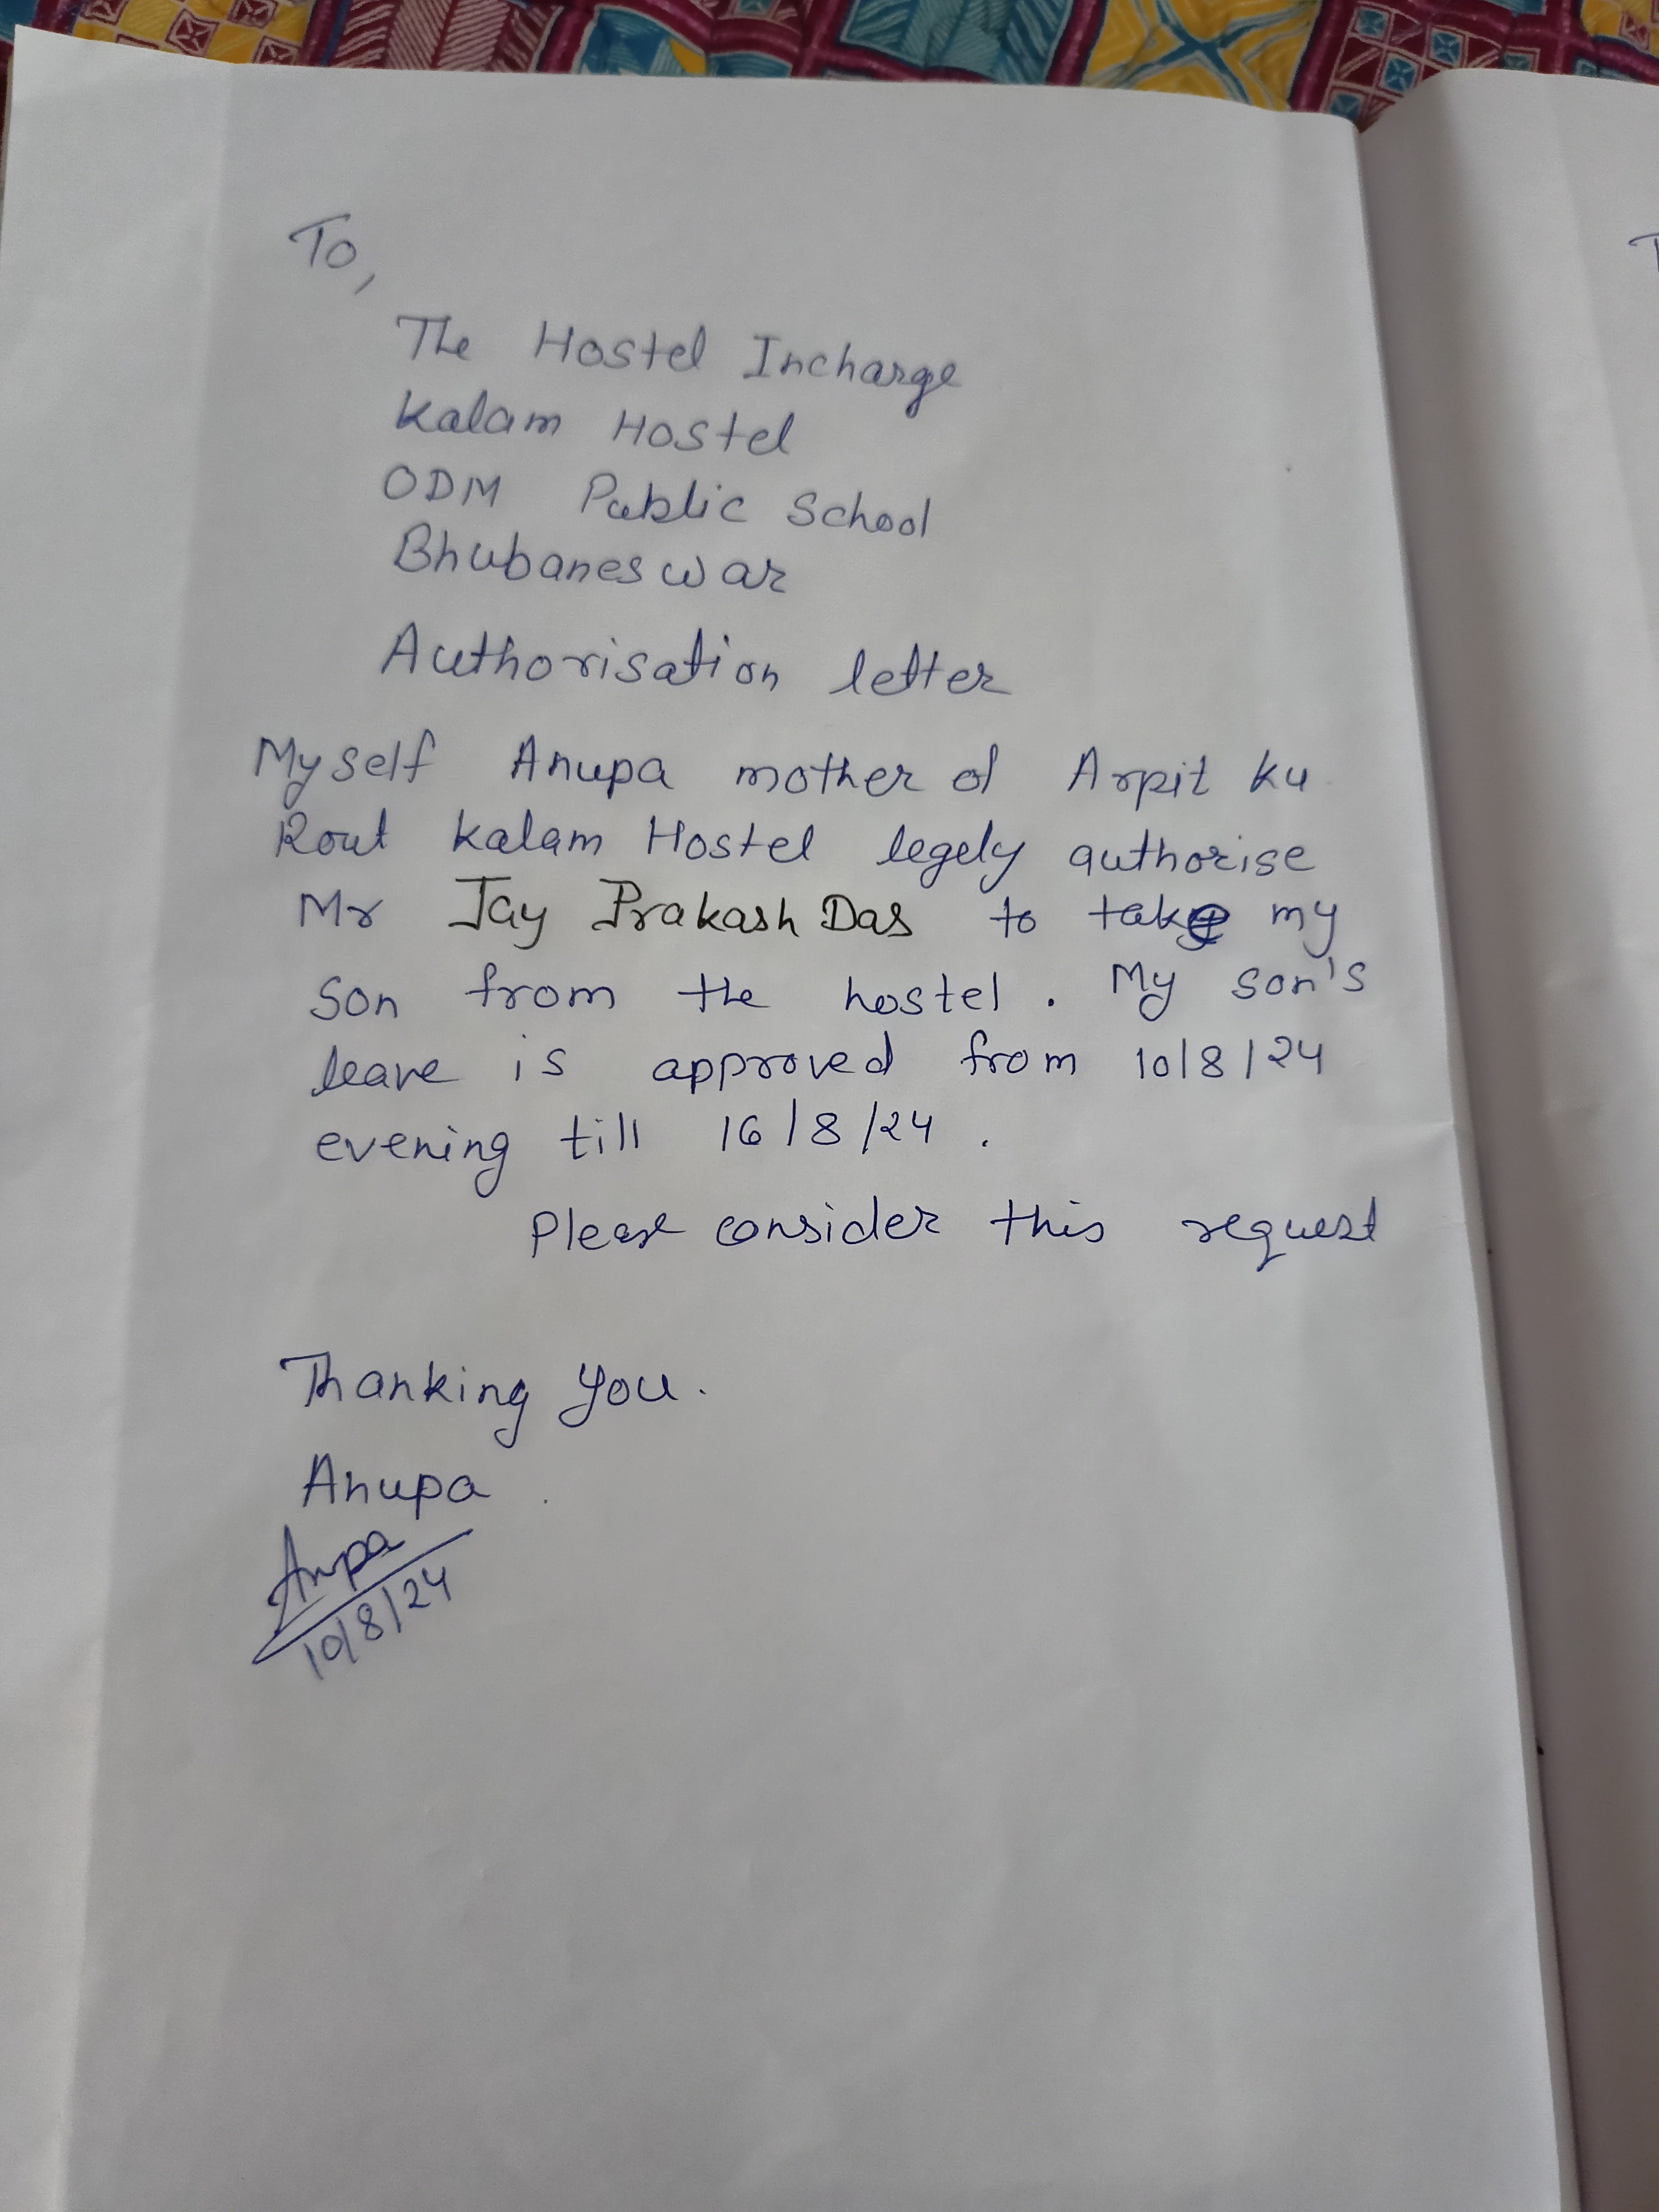 To,
The Hostel Incharge
Kalam Hostel
ODM Public School
Bhubaneswar
Authorisation letter
Myself Anupa mother of Arpit Ku
Rout Kalam Hostel legely authorise
Mr Jay Prakash Das to take my
son from the hostel. My son's
leave is approved from 10/8/24
evening till 16/8/24.
Please consider this request
Thanking you.
Anupa
Anupa
10/8/24